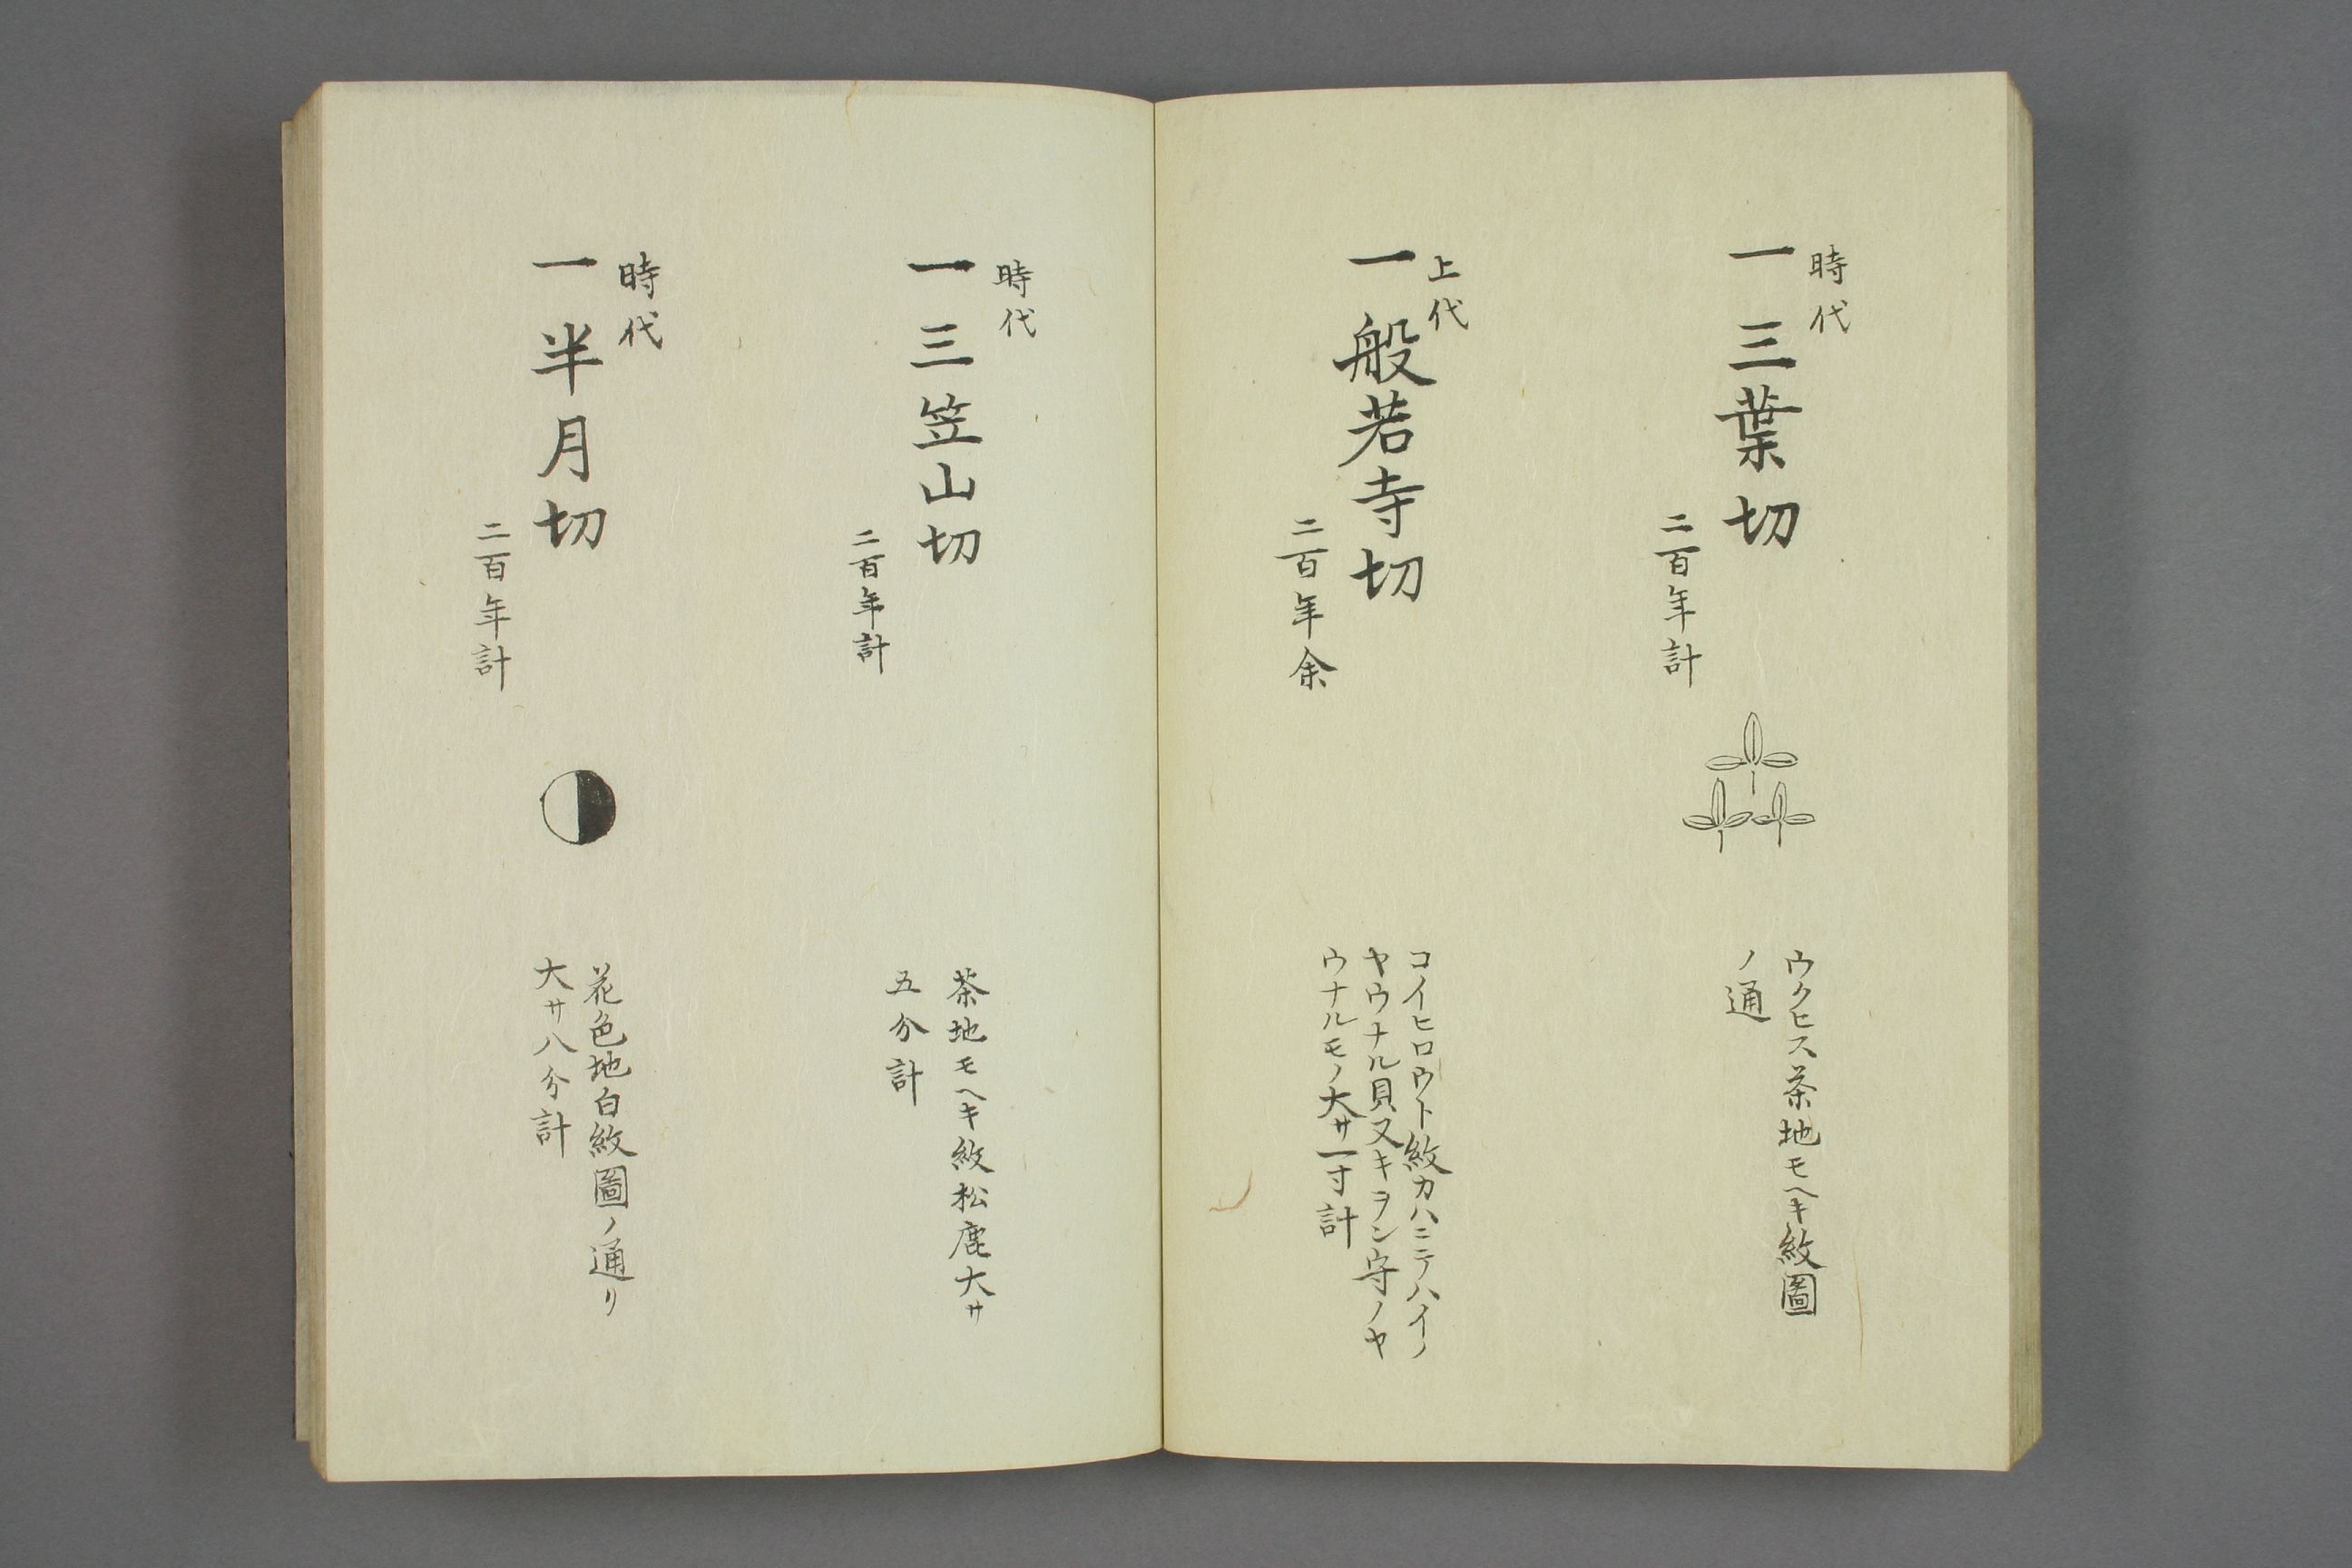 時代
一 三葉切
二百年計
ウクヒス茶地モヘキ紋圖
ノ通
上代
一 般若寺切
二百年余
コイヒロウト紋カハニテハイノ
ヤウナル貝又キヲン守ノヤ
ウナルモノ大サ一寸計
時代
一 三笠山切
二百年計
茶地モヘキ紋松鹿大サ
五分計
時代
一 半月切
二百年計
花色地白紋圖ノ通リ
大サ八分計